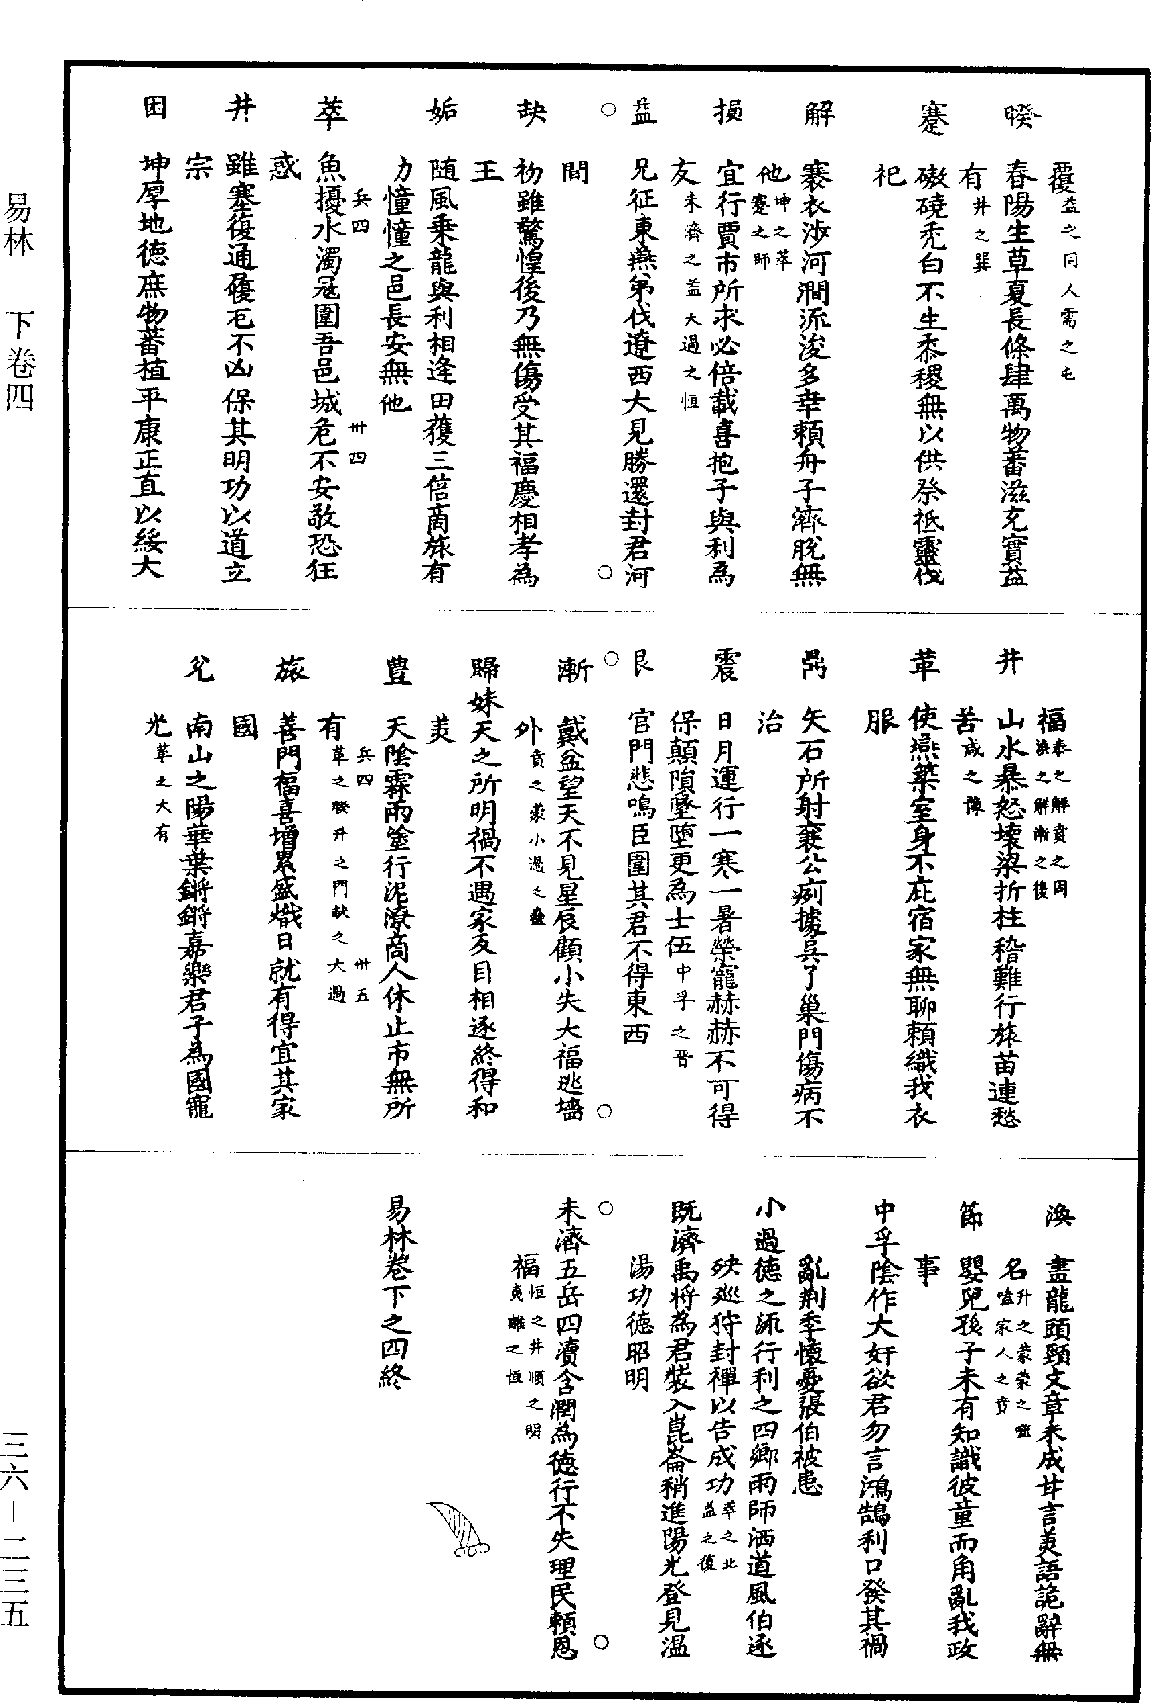 覆益之同人需之屯
睽　春陽生草夏長條肆萬物蕃滋充實益
有井之巽
蹇　磝磽禿白不生黍稷無以供祭祗靈伐
祀
解　褰衣涉河澗流浚多幸賴舟子濟脫無
他坤之萃蹇之師
損　宜行賈市所求必倍載喜抱子與利為
友未濟之益大過之恒
益　兄征東燕弟伐遼西大見勝還封君河
間
○
○
缺　初雖驚惶後乃無傷受其福慶相孝為
王
姤　随風乗龍與利相逢田獲三倍商旅有
功憧憧之邑長安無他
兵四　卅四
萃　魚擾水濁冦圍吾邑城危不安敢恐狂
惑
井　雖塞復通履危不凶保其明功以道立
宗
困　坤厚地德庶物蕃植平康正直以綏大
福泰之解賁之困渙之解漸之後
井　山水暴怒壞梁折柱稽難行旅苗連愁
苦咸之豫
革　使燕築室身不庇宿家無聊賴織我衣
服
鼎　矢石所射襄公痾據吳了巢門傷病不
治
震　日月運行一寒一暑榮寵赫赫不可得
保顛隕墜墮更為士伍中孚之晉
艮　官門悲鳴臣圍其君不得東西
○
○
漸　戴盆望天不見星辰顧小失大福逃墻
外賁之蒙小過之蠱
歸妹天之所明禍不遇家反目相逐終得和
美
豊　天陰霖雨塗行泥潦商人休止市無所
兵四　卅五
有革之睽升之鬥缺之大過
旅　善門福喜增累盛熾日就有得宜其家
國
兌　南山之陽華葉鏘鏘嘉樂君子為國寵
光革之大有
渙　畫龍頭頸文章未成甘言美語詭辭無
名升之蒙蒙之噬嗑家人之賁
節　嬰兒孩子未有知識彼童而角亂我政
事
中孚陰作大奸欲君勿言鴻鵠利口發其禍
亂荆季懷憂張伯被患
小過德之流行利之四鄉雨師洒道風伯逐
殃廵狩封禪以告成功萃之比益之復
既濟禹將為君裝入崑崙稍進陽光登見温
湯功德昭明
○
○
未濟五岳四瀆含潤為德行不失理民賴恩
福恒之井順之明夷離之恒
易林卷下之四終
易林　下卷四
三六—二三五